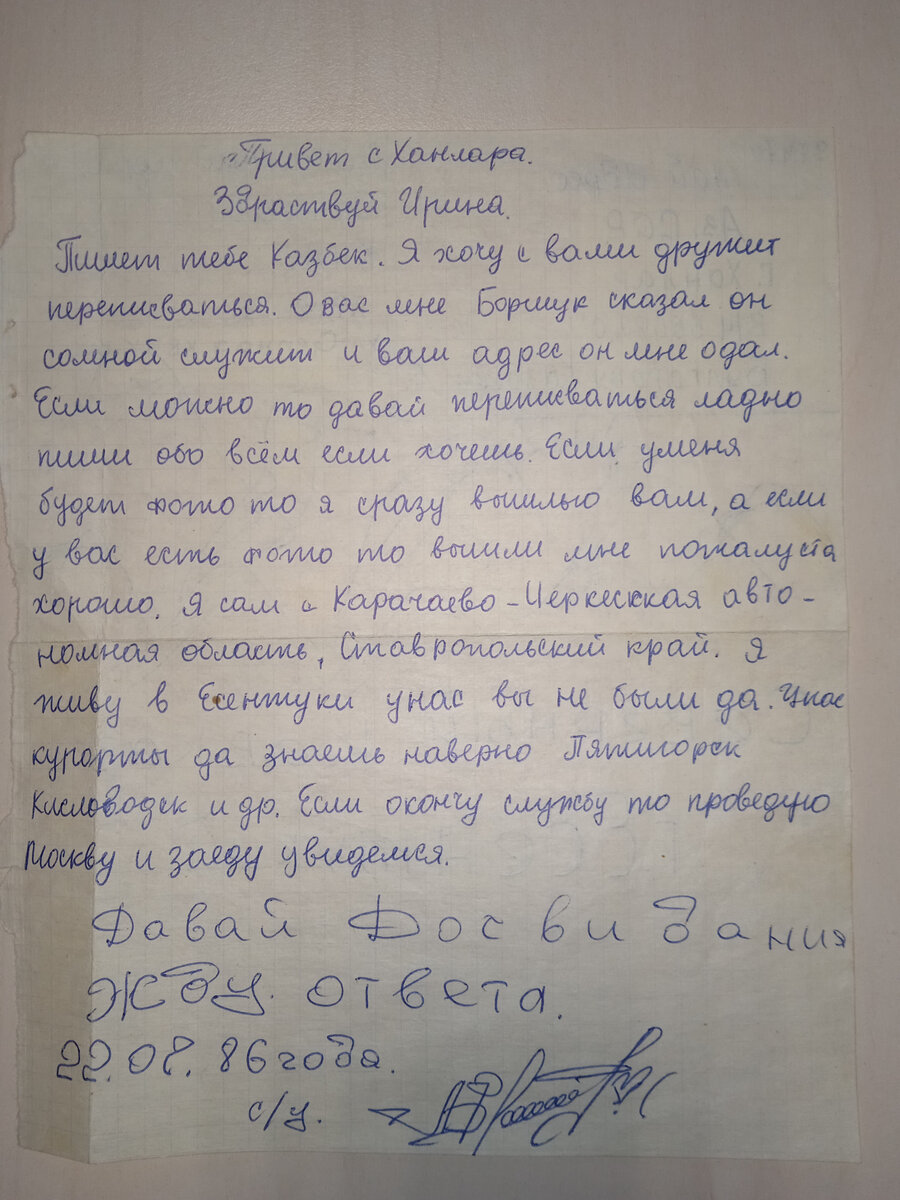 Привет с Ханлара.
Здраствуй Ирина.
Пишет тебе Казбек. Я хочу с вами дружит
переписваться. О вас мне Борищук сказал он
сомной служит и ваш адрес он мне одал.
Если можно то давай переписваться ладно
пиши обо всём если хочешь. Если уменя
будет фото то я сразу вышлью вам, а если
у вас есть фото то вышли мне пожалуста
хорошо. Я сам с Карачаево-Черкесккая авто-
номная область, Ставропольский край. Я
живу в Есентуки унас вы не были да. Унас
курорты да знаешь наверно Пятигорск
Кисловодск и др. Если окончу службу то проведую
Москву и заеду увидемся.
Давай Досвидания
Жду ответа.
22.08.86 года.
с/у.